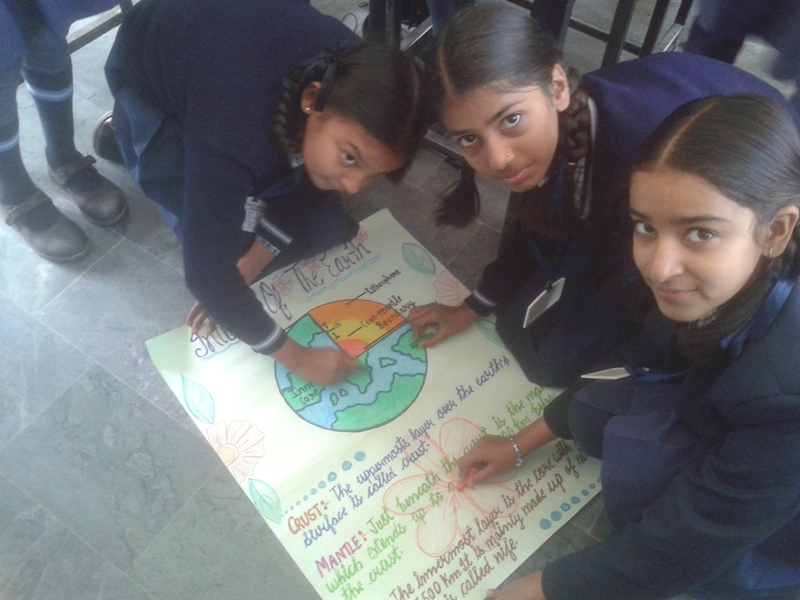 Of The Earth
Lithosphere
Core-mantle
Boundary
Inner
Core
CRUST:- The uppermosts layer over the earth's
surface is called crust.
MANTLE:- Just beneath the crust is the
which extends up to
the crust.
The innermost layer is the core with
500 Km It is mainly made up of
called nife.